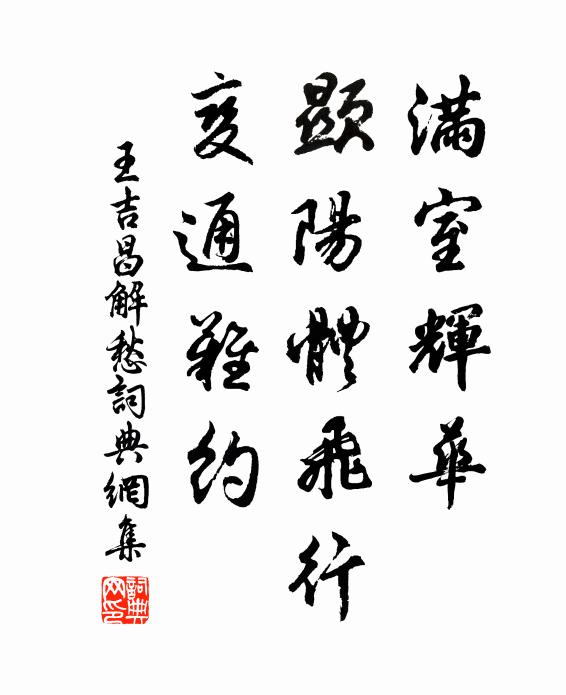 滿室輝華
顯陽體飛行
变通難約
王吉昌解愁詞典網集
詞典网印